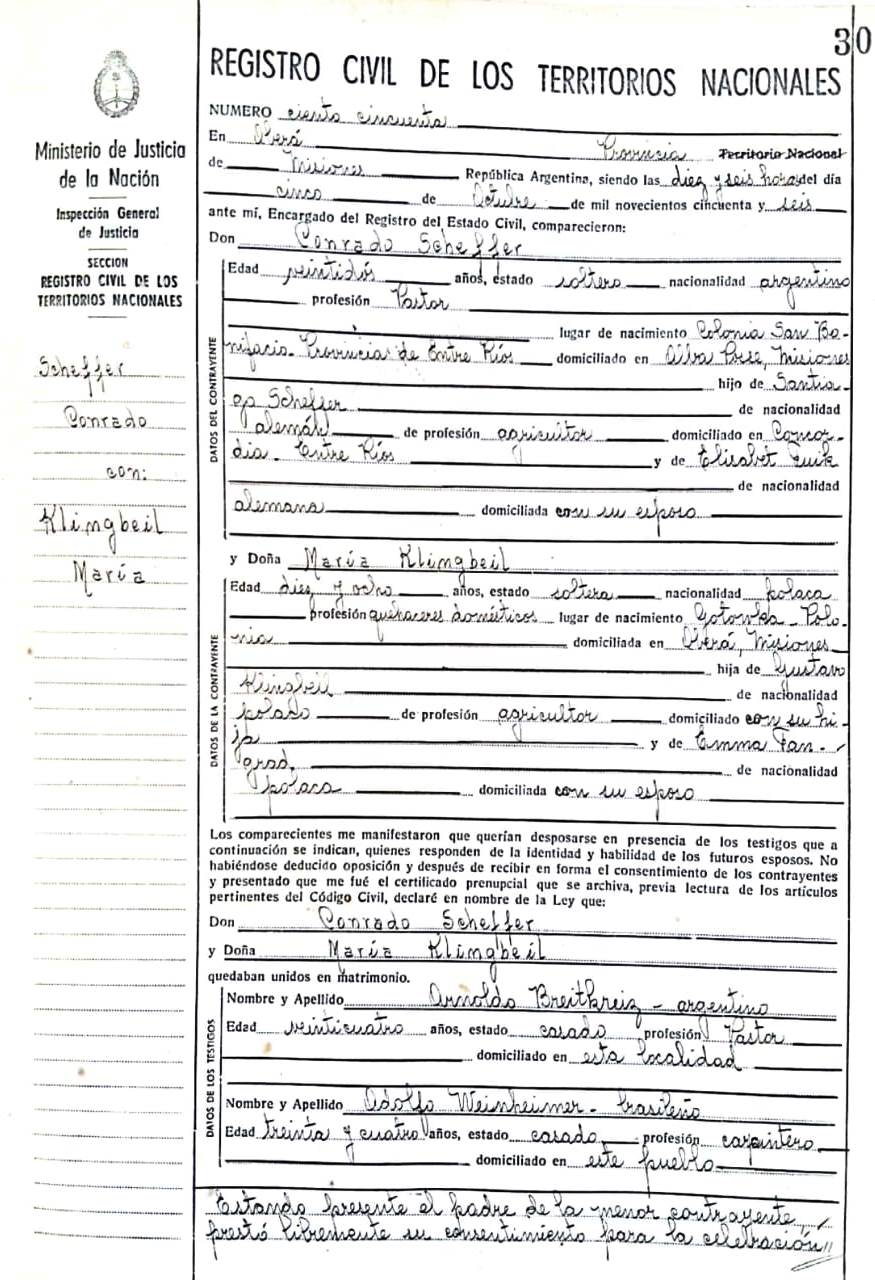 30
REGISTRO CIVIL DE LOS TERRITORIOS NACIONALES
Ministerio de Justicia
de la Nación
Inspección General
de Justicia
SECCION
REGISTRO CIVIL DE LOS
TERRITORIOS NACIONALES
Scheffer
Conrado
con:
Klingbeil
María
NUMERO ciento cincuenta
En Oberá Provincia Territorio Nacional
de Misiones República Argentina, siendo las diez y seis horas del día
cinco de Octubre de mil novecientos cincuenta y seis
ante mí, Encargado del Registro del Estado Civil, comparecieron:
Don Conrado Scheffer
DATOS DEL CONTRAYENTE
Edad veintidós años, estado soltero nacionalidad argentino
profesión Pastor
lugar de nacimiento Colonia San Bo-
nifacio. Provincia de Entre Ríos domiciliado en Alba Posse, Misiones
hijo de Santia-
go Scheffer de nacionalidad
alemán de profesión agricultor domiciliado en Concor-
dia. Entre Ríos y de Elisabet
de nacionalidad
alemana domiciliada con su esposo
y Doña María Klingbeil
DATOS DE LA CONTRAYENTE
Edad diez y ocho años, estado soltera nacionalidad polaca
profesión quehaceres domésticos lugar de nacimiento Gotowka - Polo-
nia domiciliada en Oberá, Misiones
hija de Gustavo
Klingbeil de nacionalidad
polaco de profesión agricultor domiciliado con su hi-
ja y de Emma Fan-
grad, de nacionalidad
polaca domiciliada con su esposo
Los comparecientes me manifestaron que querían desposarse en presencia de los testigos que a
continuación se indican, quienes responden de la identidad y habilidad de los futuros esposos. No
habiéndose deducido oposición y después de recibir en forma el consentimiento de los contrayentes
y presentado que me fué el certificado prenupcial que se archiva, previa lectura de los artículos
pertinentes del Código Civil, declaré en nombre de la Ley que:
Don Conrado Scheffer
y Doña María Klingbeil
quedaban unidos en matrimonio.
DATOS DE LOS TESTIGOS
Nombre y Apellido Arnoldo Breitkreiz - argentino
Edad veinticuatro años, estado casado profesión Pastor
domiciliado en esta localidad
Nombre y Apellido Adolfo Weinheimer - brasileño
Edad treinta y cuatro años, estado casado profesión carpintero
domiciliado en este pueblo
Estando presente el padre de la menor contrayente,
prestó libremente su consentimiento para la celebración//